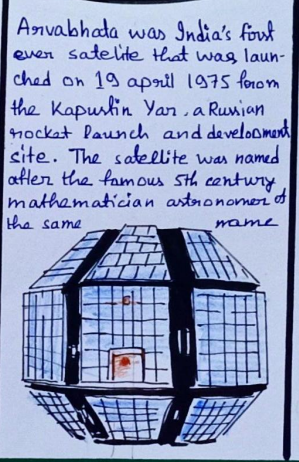 Arvabhata was India's first
ever satelite that was laun-
ched on 19 april 1975 from
the Kapustin Yar, a Russian
rocket launch and development
site. The satellite was named
after the famous 5th century
mathematician astronomer of
the same name